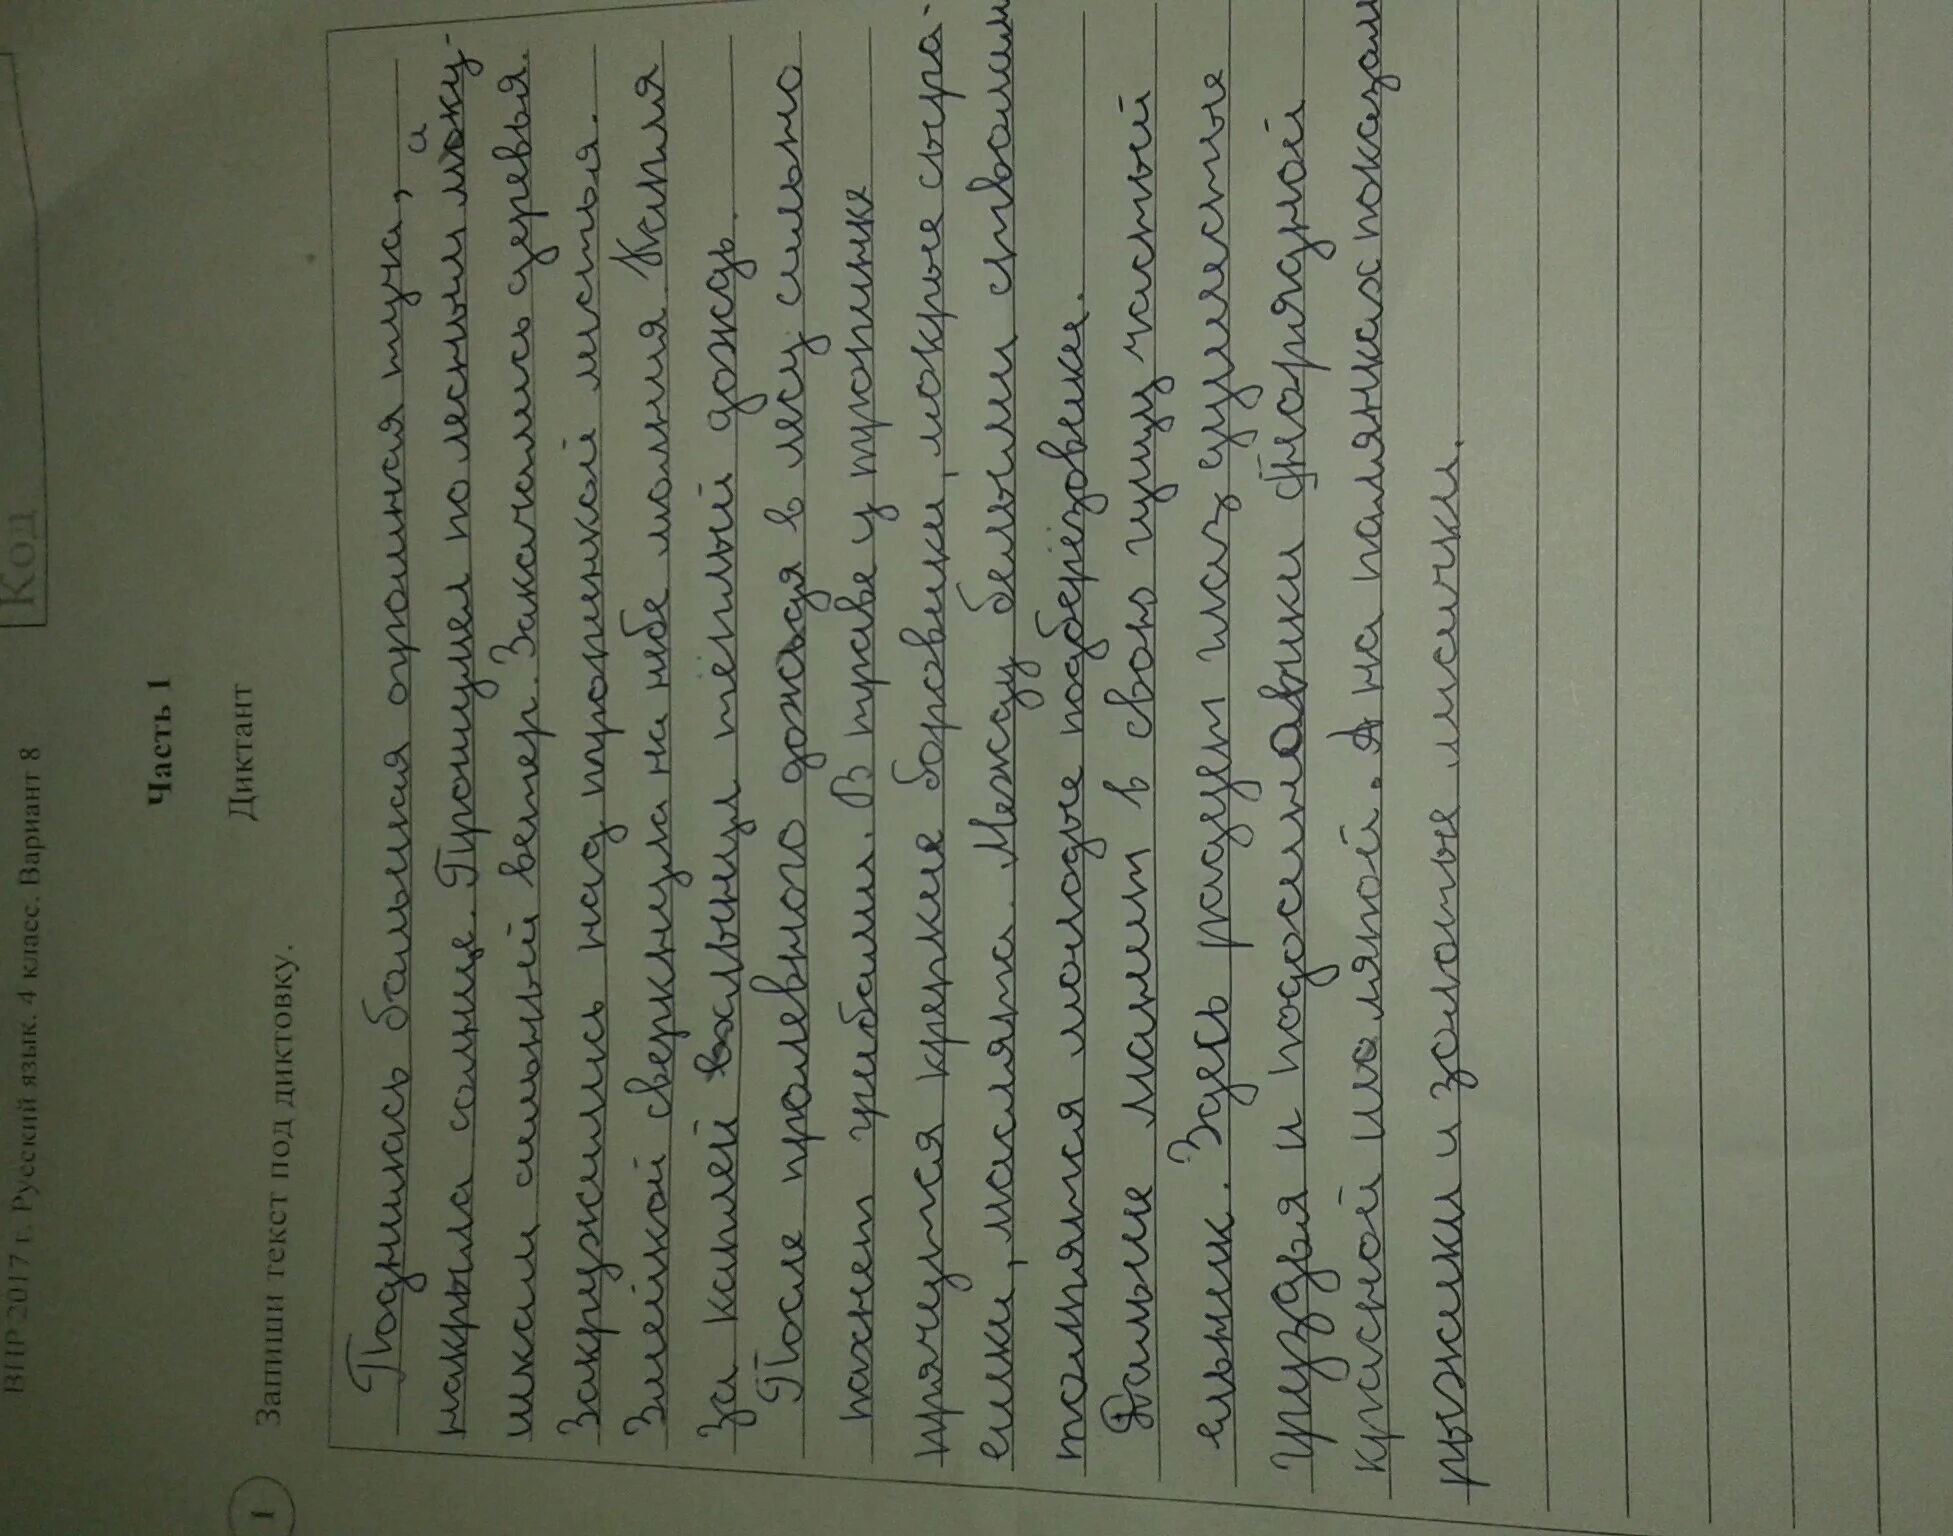 ВПР 2017 г. Русский язык. 4 класс. Вариант 8
Код
Часть 1
Диктант
1
Запиши текст под диктовку.
Поднилась большая огромная туча,
накрыла солнце. Прошумел по лесным маку-
шкам сильный ветер. Закачались деревья
Закружились над тропенкой листья.
Змейкой сверкнула на небе молния Капля
за каплей вхлынул тёплый дождь.
После пролевного дождя в лесу сильно
пахнет грибами. В траве у тропинке
прячутся крепкие боровики, мокрые сыра-
ешки, маслята. Между белыми стволами
толпятся молодые подберёзовеки.
Дальше манит в свою чущу частый
ельник. Здесь радует глаз душистые
груздья и подосиновики с нарядной
красной шляпой. А на полянках показали
рыжики и золотые лисички.